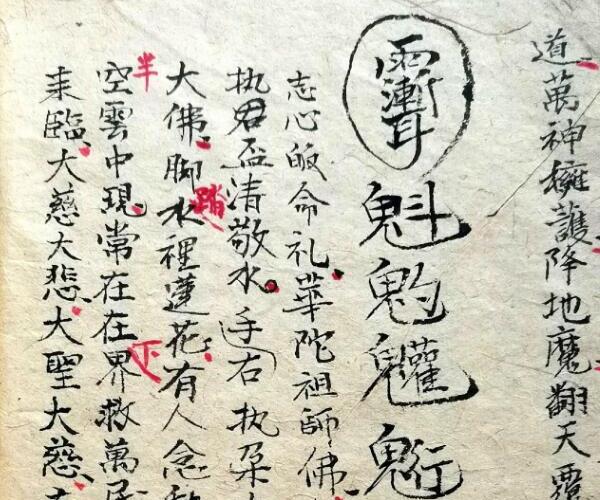 道萬神擁護降地魔翻天覆
魁
志心皈命礼華陀祖師佛
执君盃清敬水手右执朵
大佛脚踏水裡蓮花有人念
半空雲中現常在在下界救萬
来臨大慈大悲大聖大慈